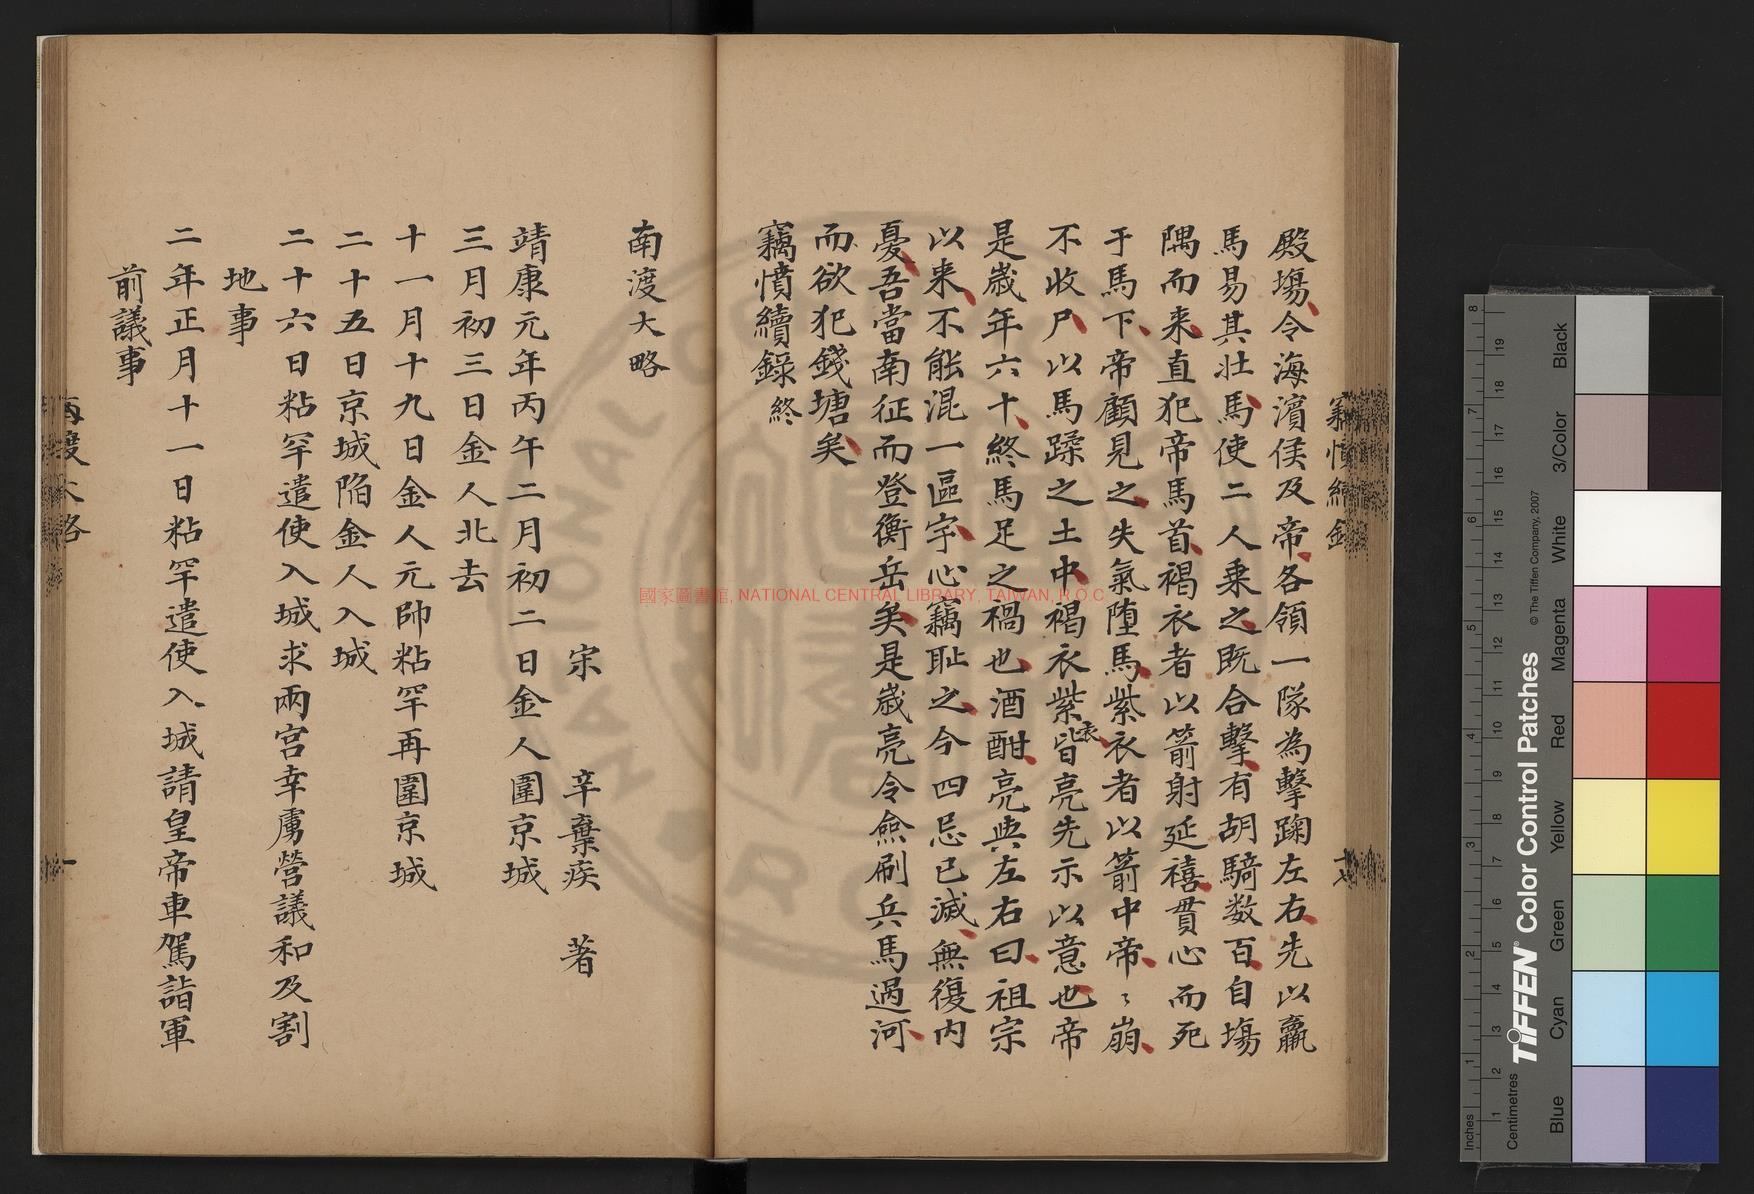 殿塲令海濵侯及帝各領一隊為擊踘左右先以羸
馬易其壮馬使二人乗之既合擊有胡騎数百自塲
隅而来直犯帝馬首褐衣者以箭射延禧貫心而死
于馬下帝顧見之失氣墮馬紫衣者以箭中帝〻崩
不收尸以馬蹂之土中褐衣紫衣皆亮先示以意也帝
是歳年六十終馬足之禍也酒酣亮與左右曰祖宗
以来不能混一區宇心竊恥之今四忌已滅無復内
憂吾當南征而登衡岳矣是歳亮令僉刷兵馬過河
而欲犯錢塘矣
竊憤續錄終
南渡大略
宋 辛棄疾 著
靖康元年丙午二月初二日金人圍京城
三月初三日金人北去
十一月十九日金人元帥粘罕再圍京城
二十五日京城陷金人入城
二十六日粘罕遣使入城求兩宫幸虜營議和及割
地事
二年正月十一日粘罕遣使入城請皇帝車駕詣軍
前議事
國家圖書館, NATIONAL CENTRAL LIBRARY, TAIWAN, R.O.C
TIFFEN® Color Control Patches
© The Tiffen Company, 2007
Centimetres
Inches
Blue
Cyan
Green
Yellow
Red
Magenta
White
3/Color
Black